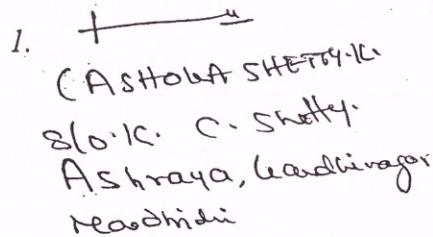 1.
(ASHOKA SHETTY.K.
S/o.K. C. Shetty.
Ashraya, Gandhinagar